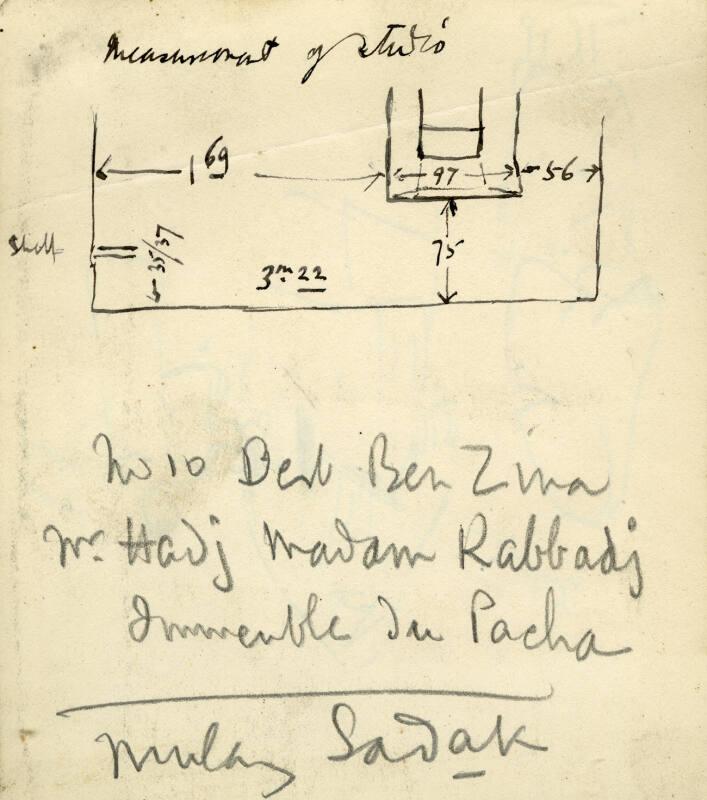 Measurement of studio
1 69
97
56
Shelf
35/37
75
3m 22
No 10 Derb Ben Zina
Mr. Hadj Madam Rabbadj
Immeuble du Pacha
Mulay Sadak